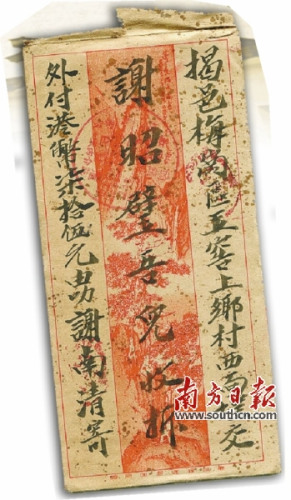 揭邑梅岡區五窖上鄉村西交
謝昭璧吾兒收拆
外付港幣柒拾伍元 謝南清寄
南方日报
www.southcn.com